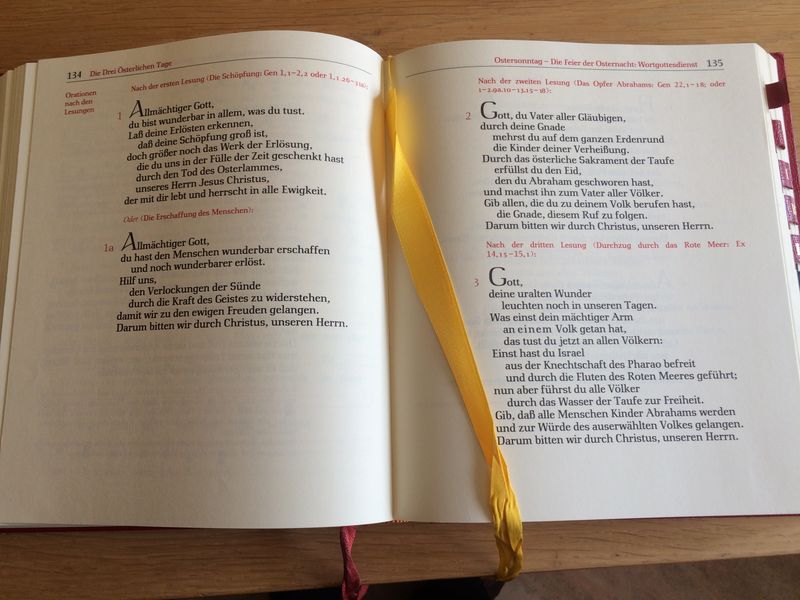 134 Die Drei Österlichen Tage
Orationen
nach den
Lesungen
Nach der ersten Lesung (Die Schöpfung: Gen 1,1–2,2 oder 1,1.26–31a):
1 Allmächtiger Gott,
du bist wunderbar in allem, was du tust.
Laß deine Erlösten erkennen,
daß deine Schöpfung groß ist,
doch größer noch das Werk der Erlösung,
die du uns in der Fülle der Zeit geschenkt hast
durch den Tod des Osterlammes,
unseres Herrn Jesus Christus,
der mit dir lebt und herrscht in alle Ewigkeit.
Oder (Die Erschaffung des Menschen):
1a Allmächtiger Gott,
du hast den Menschen wunderbar erschaffen
und noch wunderbarer erlöst.
Hilf uns,
den Verlockungen der Sünde
durch die Kraft des Geistes zu widerstehen,
damit wir zu den ewigen Freuden gelangen.
Darum bitten wir durch Christus, unseren Herrn.
Ostersonntag – Die Feier der Osternacht: Wortgottesdienst 135
Nach der zweiten Lesung (Das Opfer Abrahams: Gen 22,1–18; oder
1–2.9a.10–13.15–18):
2 Gott, du Vater aller Gläubigen,
durch deine Gnade
mehrst du auf dem ganzen Erdenrund
die Kinder deiner Verheißung.
Durch das österliche Sakrament der Taufe
erfüllst du den Eid,
den du Abraham geschworen hast,
und machst ihn zum Vater aller Völker.
Gib allen, die du zu deinem Volk berufen hast,
die Gnade, diesem Ruf zu folgen.
Darum bitten wir durch Christus, unseren Herrn.
Nach der dritten Lesung (Durchzug durch das Rote Meer: Ex
14,15–15,1):
3 Gott,
deine uralten Wunder
leuchten noch in unseren Tagen.
Was einst dein mächtiger Arm
an einem Volk getan hat,
das tust du jetzt an allen Völkern:
Einst hast du Israel
aus der Knechtschaft des Pharao befreit
und durch die Fluten des Roten Meeres geführt;
nun aber führst du alle Völker
durch das Wasser der Taufe zur Freiheit.
Gib, daß alle Menschen Kinder Abrahams werden
und zur Würde des auserwählten Volkes gelangen.
Darum bitten wir durch Christus, unseren Herrn.